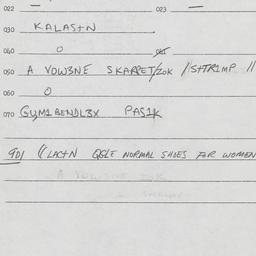 022 023
030 KALASTN
040 0 041
050 A VOW3NE SKARPET/ZOK //STR1MP //
060 0
070 GYM1BENDL3X PAS1K
901 ((LASTN QGLE NORMAL SHOES FOR WOMEN